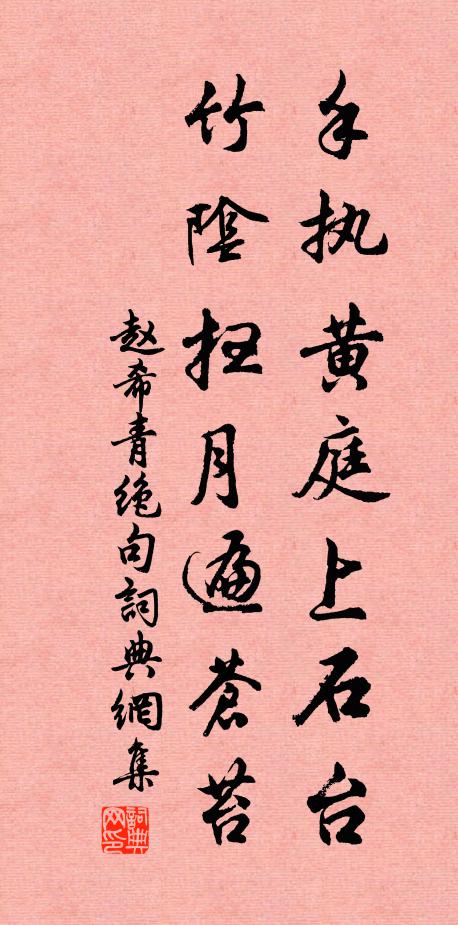 手执黄庭上石台
竹阴扫月遍苍苔
赵希青绝句词典網集
詞典网印